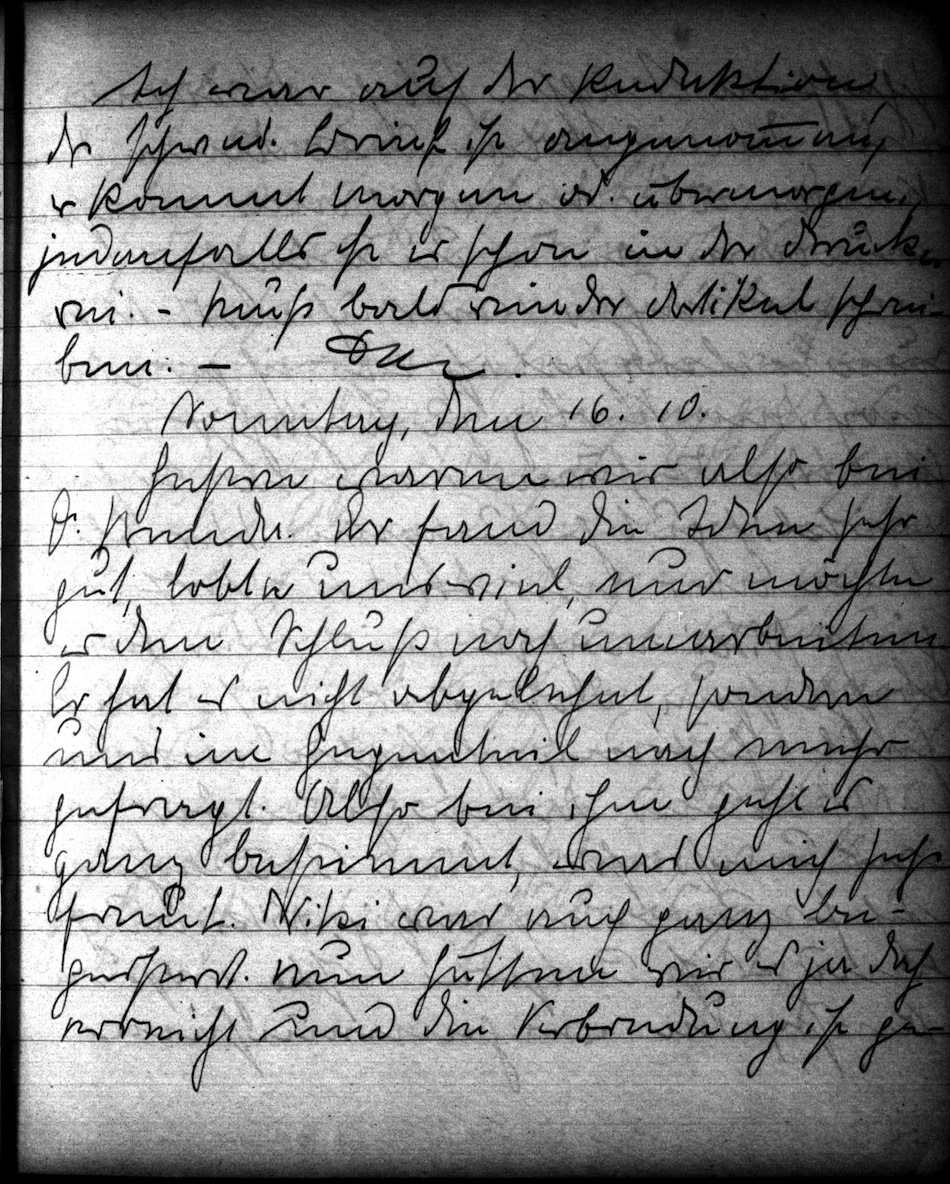 Ich war auf der Redaktion
der Schwed. Brief ist angenommen,
er kommt morgen od. übermorgen,
jedenfalls ist er schon in der Drucke-
rei. – Muß bald wieder Artikel schrei-
ben. –
Sonntag, den 16. 10.
Gestern waren wir also bei
Dr. Der fand die Ideen sehr
gut, lobte uns viel, nur möchte
er den Schluß noch umarbeiten
Er hat es nicht abgelehnt, sondern
uns im Gegenteil nach mehr
gefragt. Also bei ihm geht es
ganz bestimmt, was mich sehr
freut. Niki war auch ganz be-
geistert. Nun hätten wir es ja doch
erreicht und die Verbindung ist ge-